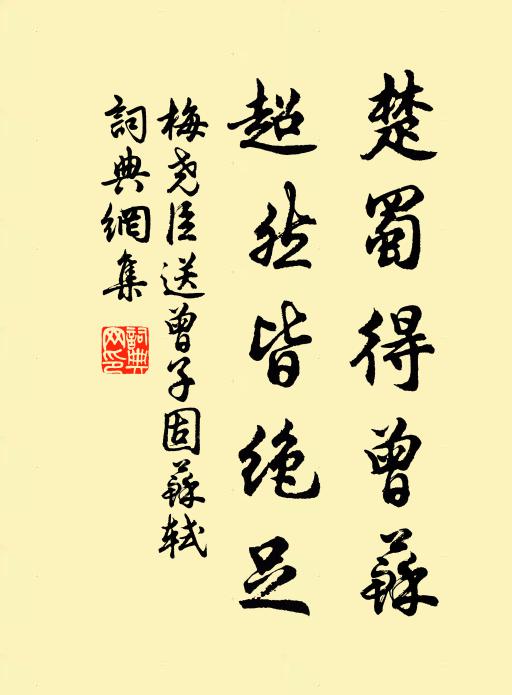 楚蜀得曾蘇
超然皆絶足
梅尧臣送曾子固蘇軾
詞典網集
詞典网印